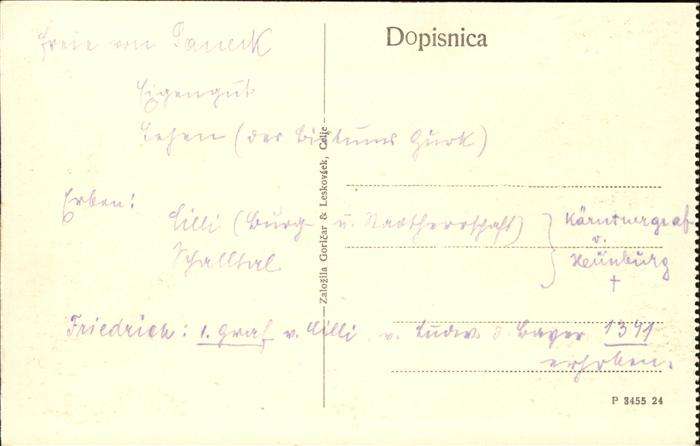 Dopisnica
Freie von Saneck
Eigengut
Lehen (des Bistums Gurk)
Erben:
Cilli (Burg- u. Stadtherrschaft) } Kärntnergraf
v.
Schalltal
Heunburg
†
Friedrich: 1. Graf v. Cilli v. Ludw d Bayer 1341
erhoben.
Založila Goričar & Leskovšek, Celje
P 3455 24